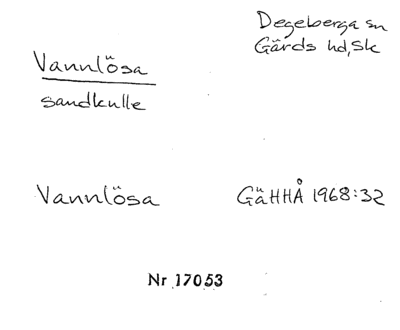 Degeberga sn
Gärds hd, Sk
Vannlösa
sandkulle
Vannlösa
GäHHÅ 1968:32
Nr 17053